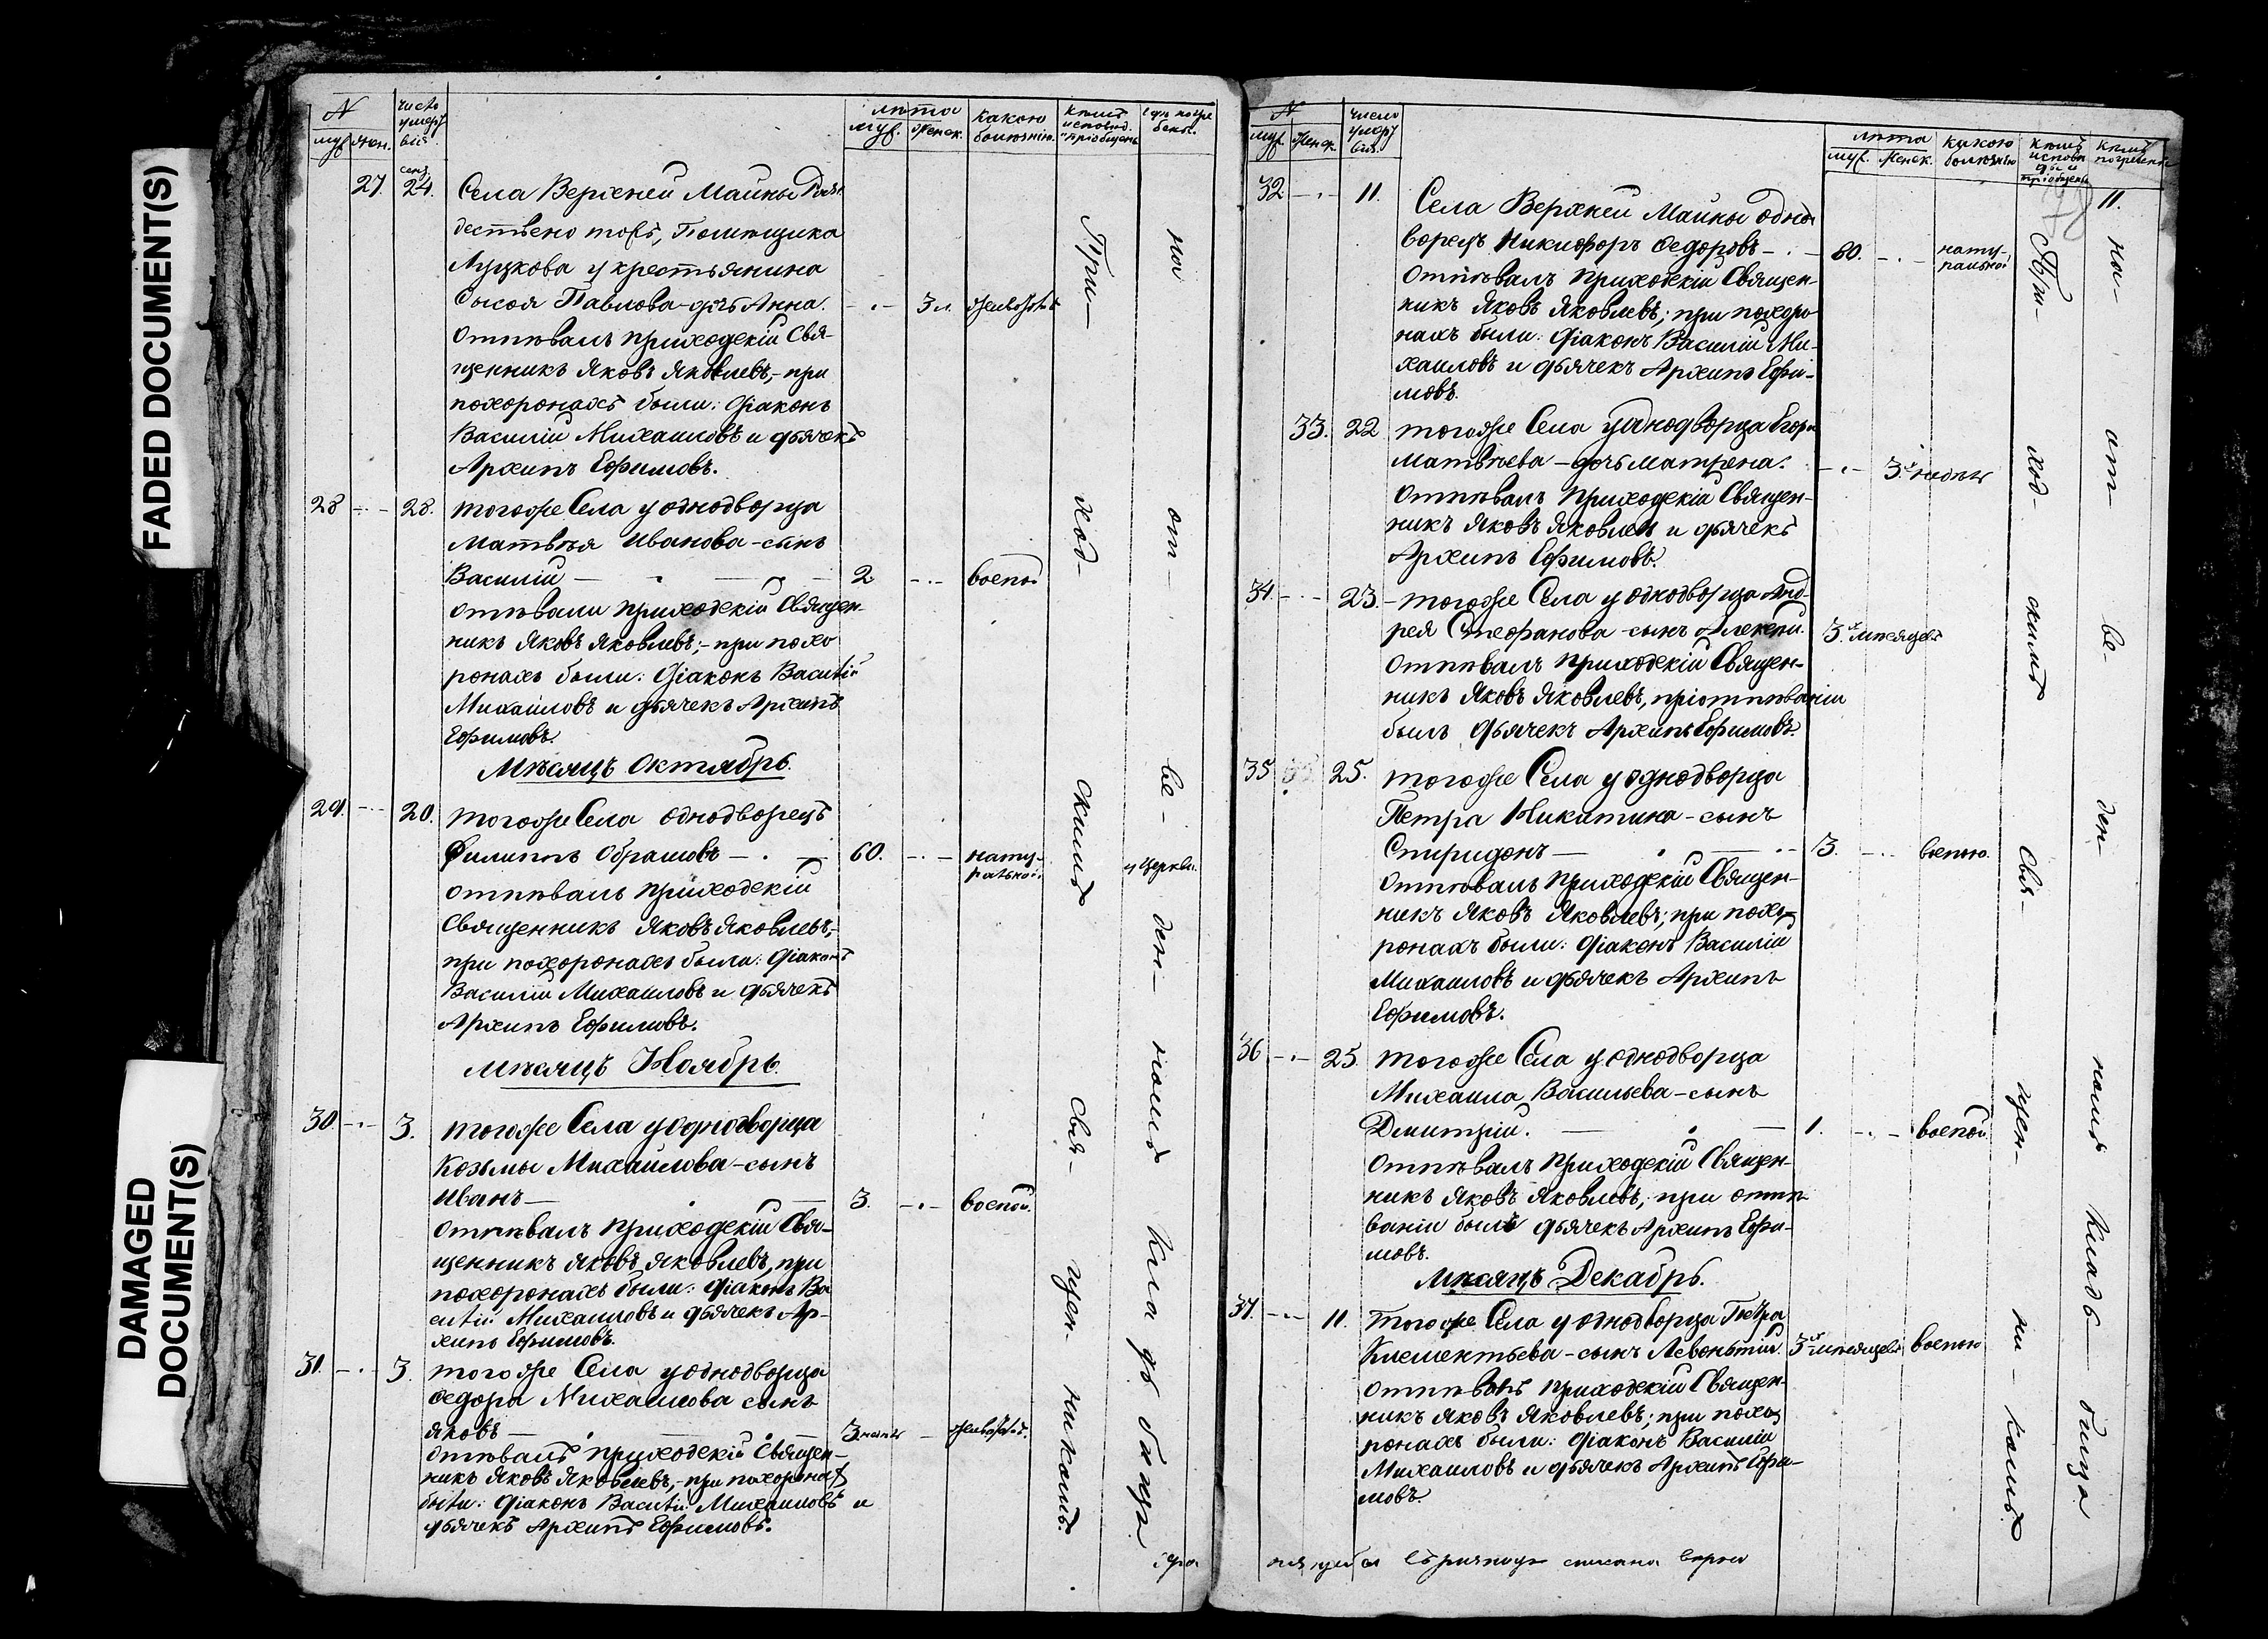 FADED DOCUMENT(S)
DAMAGED
DOCUMENT(S)
N
муж. жен.
число
умер
вшѣ.
лѣта
муж. женск.
какою
болѣзнію.
кѣмъ
исповед.
и пріобщены
гдѣ погре
бены.
27. сент. 24. Села Верхней Майны Рож
дествено тожъ, Помѣщика
крестьянина
Сысоя Павлова-дочь Анна. 3 л.
Отпѣвалъ приходскій Свя-
щенникъ Яковъ Яковлевъ,- при
похоронахъ были: Діаконъ
Василій Михаиловъ и дьячекъ
Архипъ Ефимовъ.
28 28. тогоже Села у однодворца
Матвѣя Иванова-сынъ
Василій 2 воспой
отпѣвали приходскій Священ-
никъ Яковъ Яковлевъ;- при похо
ронахъ были: Діаконъ Василій
Михаиловъ и дьячекъ Архипъ
Ефимовъ.
Мѣсяцъ Октябрь.
29. 20. тогоже Села однодворецъ
Филиппъ Обрамовъ 60. нату-
ральной. у церкви.
отпѣвалъ приходскій
Священникъ Яковъ Яковлевъ,-
при похоронахъ были: Діаконъ
Василій Михаиловъ и дьячекъ
Архипъ Ефимовъ.
Мѣсяцъ Ноябрь.
30. 3. тогоже Села у однодворца
Козьмы Михаилова-сынъ
Иванъ 3. воспой.
Отпѣвалъ приходскій Свя-
щенникъ Яковъ Яковлевъ, при
похоронахъ были: Діаконъ Ва
силій Михаиловъ и дьячекъ Ар-
хипъ Ефимовъ.
31. 3. тогоже Села у однодворца
Федора Михаилова сынъ
Яковъ
Отпѣвалъ приходскій Священ-
никъ Яковъ Яковлевъ,- при похоронах
были: Діаконъ Василій Михаиловъ и
дьячекъ Архипъ Ефимовъ.
При- ход- скимъ свя- щен- никомъ.
на от- ве- ден- номъ кладбищѣ.
N
муж. женск.
число
умер
вш.
лѣта
муж. женск.
какою
болѣзнію
кѣмъ
испове
ды и
пріобщены
кѣмъ
погребены
32 11. Села Верхней Майны одно
ворецъ Никифоръ Федоровъ 60. нату-
ральной
Отпѣвалъ приходскій Священ-
никъ Яковъ Яковлевъ; при похоро
нахъ были: Діаконъ Василій Ми-
хаиловъ и дьячекъ Архипъ Ефи-
мовъ.
33. 22 тогоже Села у однодворца Егора
Матвѣева-дочь Матрена. 3.
Отпѣвалъ приходскій Священ-
никъ Яковъ Яковлевъ и дьячекъ
Архипъ Ефимовъ.
34. 23. тогоже Села у однодворца Анд-
рея Стефанова-сынъ Алексѣй. 3.х мѣсяцевъ
Отпѣвалъ приходскій Священ-
никъ Яковъ Яковлевъ, приотпѣваніи
былъ дьячекъ Архипъ Ефимовъ.
35 25. тогоже Села у однодворца
Петра Никитина-сынъ
Спиридонъ 3. воспою.
Отпѣвалъ приходскій Священ-
никъ Яковъ Яковлевъ; при похо
ронахъ были: Діаконъ Василій
Михаиловъ и дьячекъ Архипъ
Ефимовъ.
36 25. тогоже Села у однодворца
Михаила Васильева-сынъ
Дмитрій. 1. воспой.
Отпѣвалъ приходскій Священ-
никъ Яковъ Яковлевъ; при отпѣ
ваніи былъ дьячекъ Архипъ Ефи-
мовъ.
Мѣсяцъ Декабрь.
37. 11. Тогоже Села у однодворца Петра
Клементьева-сынъ Левонтій. 3х мѣсяцевъ воспою
отпѣвалъ приходскій Священ-
никъ Яковъ Яковлевъ; при похо
ронахъ были: Діаконъ Василій
Михаиловъ и дьячекъ Архипъ Ефи-
мовъ.
При- ход- скимъ свя- щен- ни- комъ
на- от- ве- ден- номъ кладбища